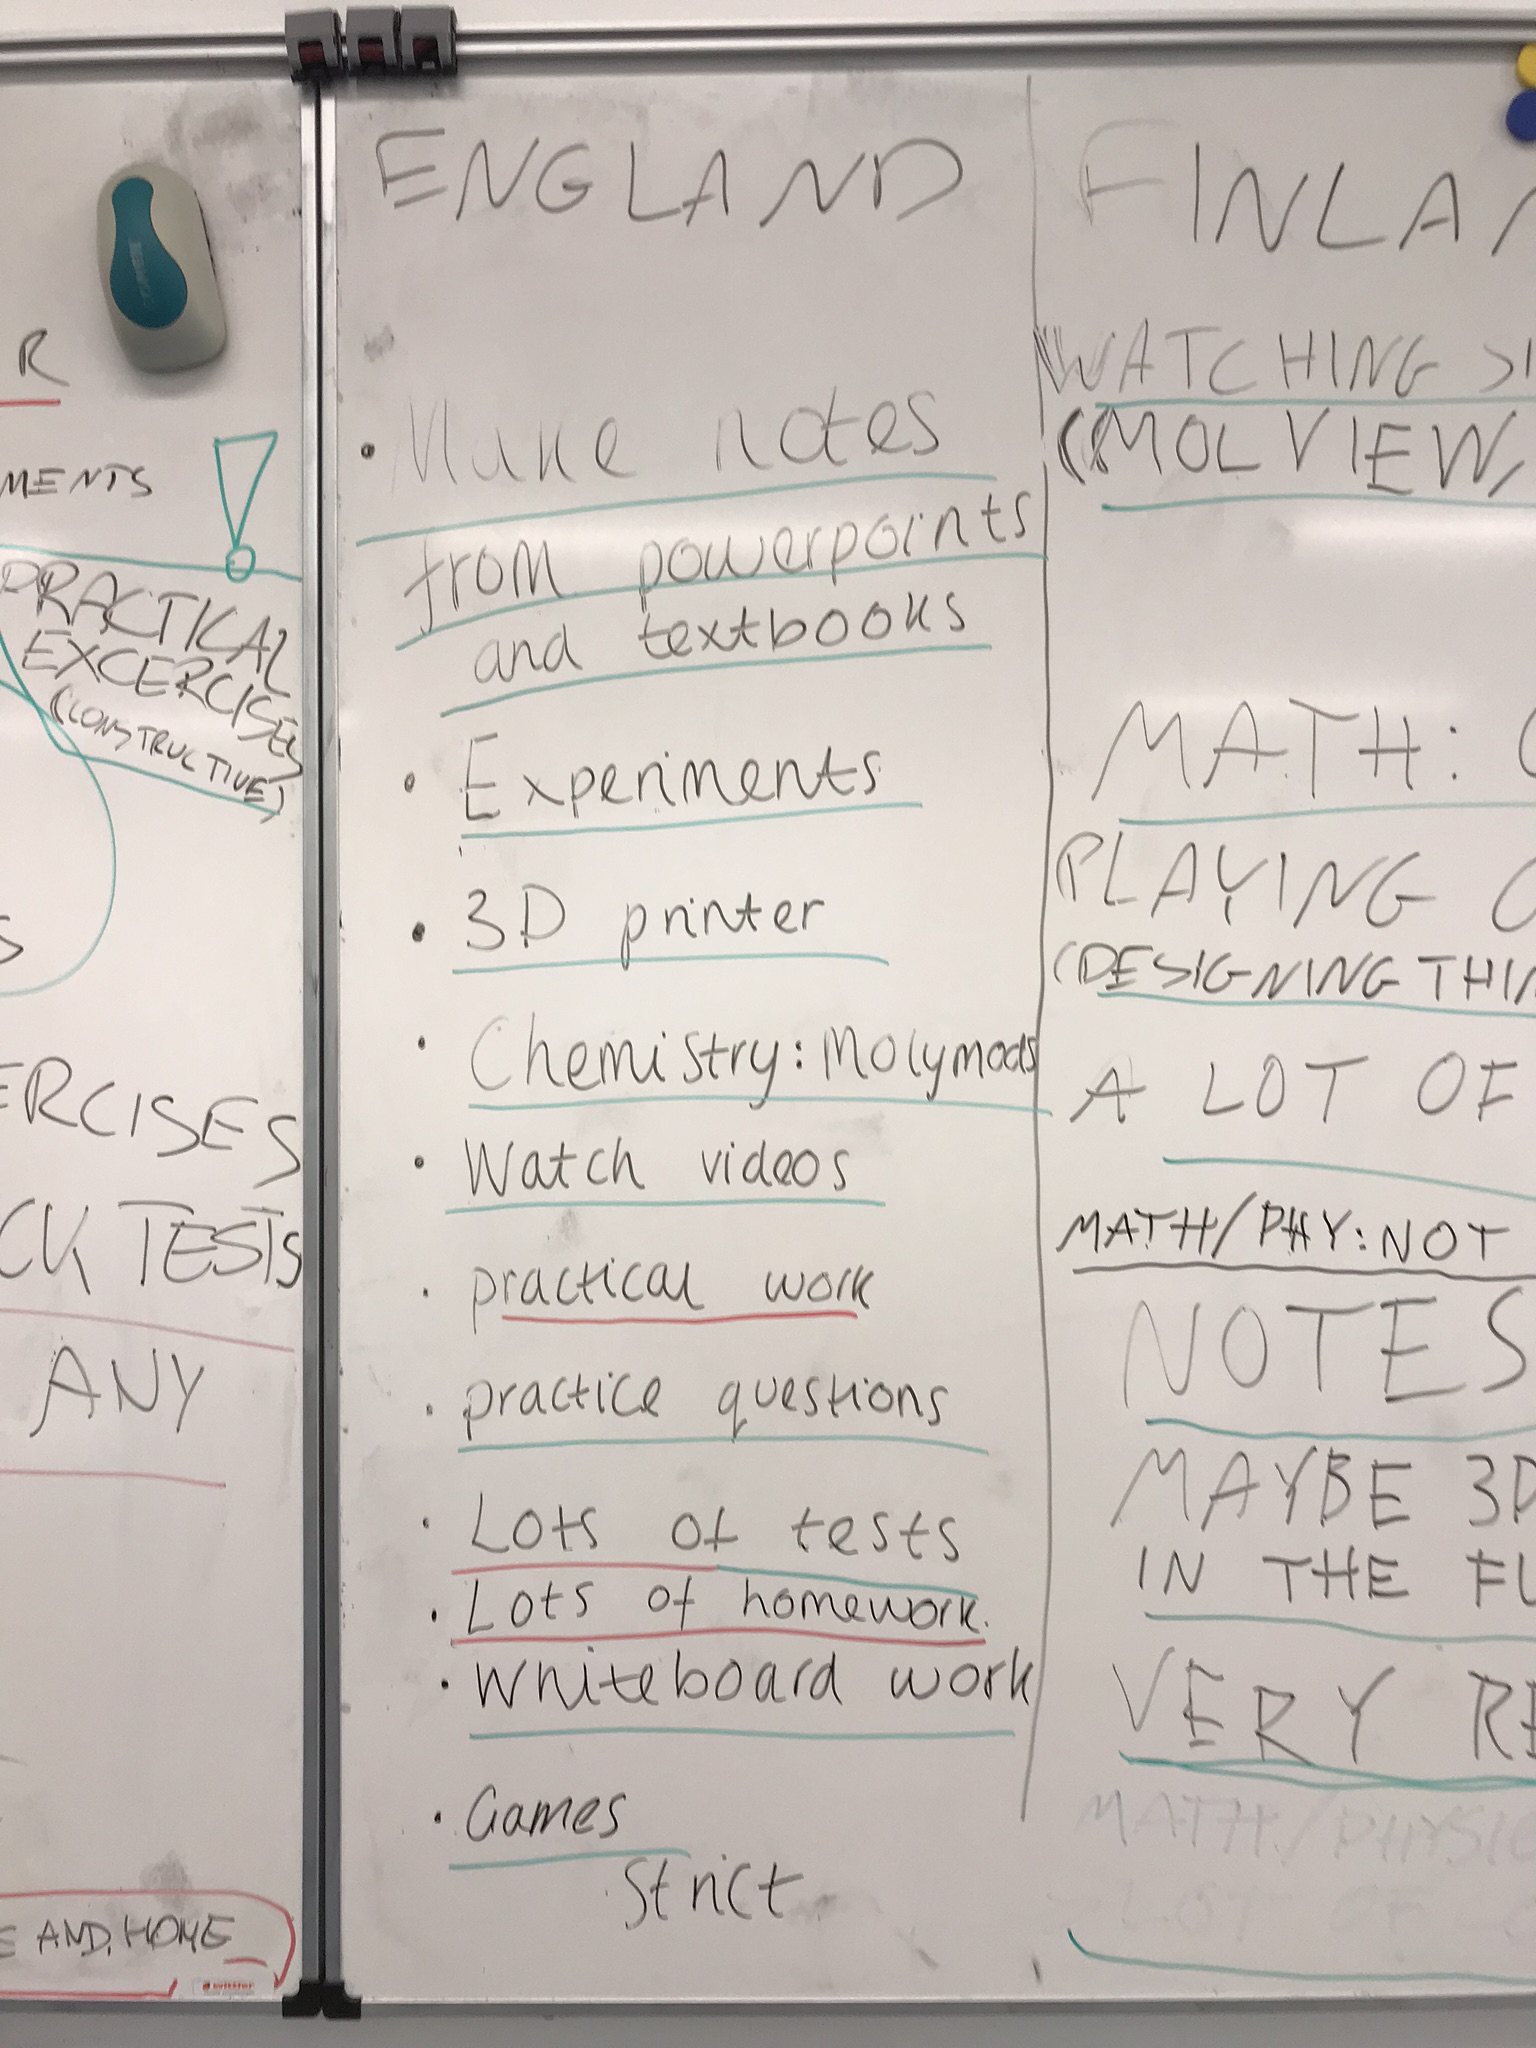 R
MENTS
PRACTICAL
EXCERCISES
(CONSTRUCTIVE)
S
ERCISES
CK TESTS
ANY
E AND HOME
ENGLAND
• Make notes
from powerpoints
and textbooks
• Experiments
• 3D printer
• Chemistry: Molymods
• Watch videos
• practical work
• practice questions
• Lots of tests
• Lots of homework.
• Whiteboard work
• Games
Strict
FINLAN
WATCHING SI
(MOLVIEW,
MATH: C
PLAYING
(DESIGNING THIN
A LOT OF
MATH/PHY: NOT
NOTES
MAYBE 3D
IN THE FU
VERY RE
MATH/PHYSIC
LOT OF